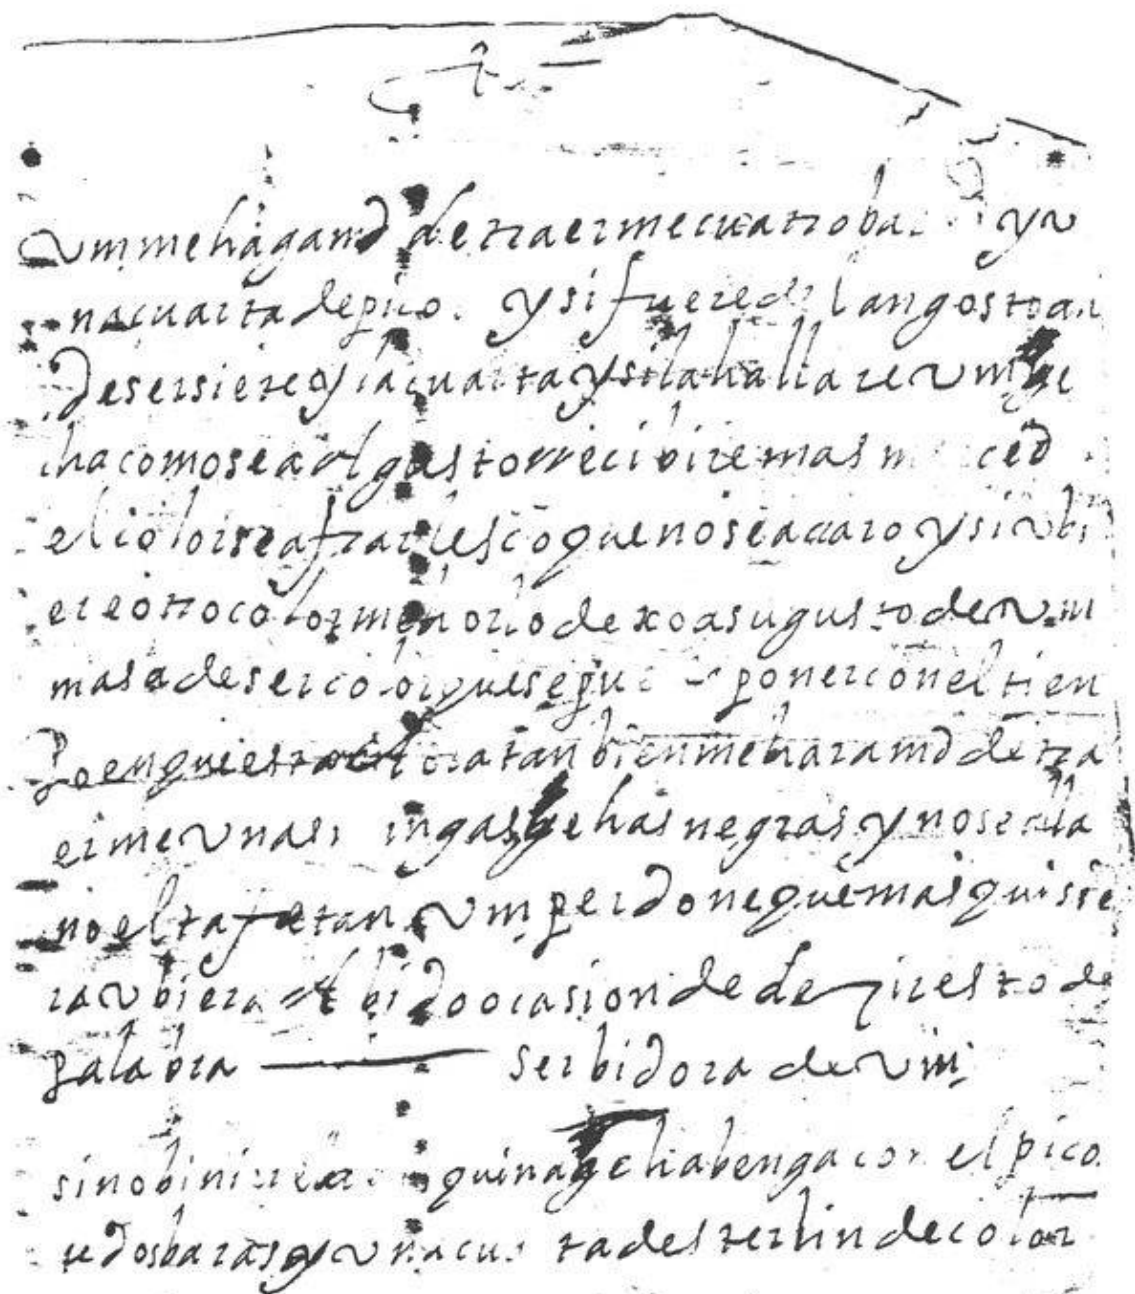 vm me haga md de traerme cuatro ba y v
na cuarta de pico y si fuere del angosto an
de ser siete y la cuarta y si la hallare vm he
cha como sea al gusto rrecibire mas merced
el color sea frailesco que no sea caro y si vbi
ere otro color mehor lo dexo a su gusto de vm
mas a de ser color que se pu poner con el tien
po en questa ora tanbien me hara md de tra
erme vnas ingas hechas negras y no se alla
no el tafetan vm perdone que mas quisie
ra vbiera abido ocasion de deçir esto de
palabra serbidora de vm
si no biniere quina hecha benga con el pico
dos baras y vna cu ta de esterlin de color